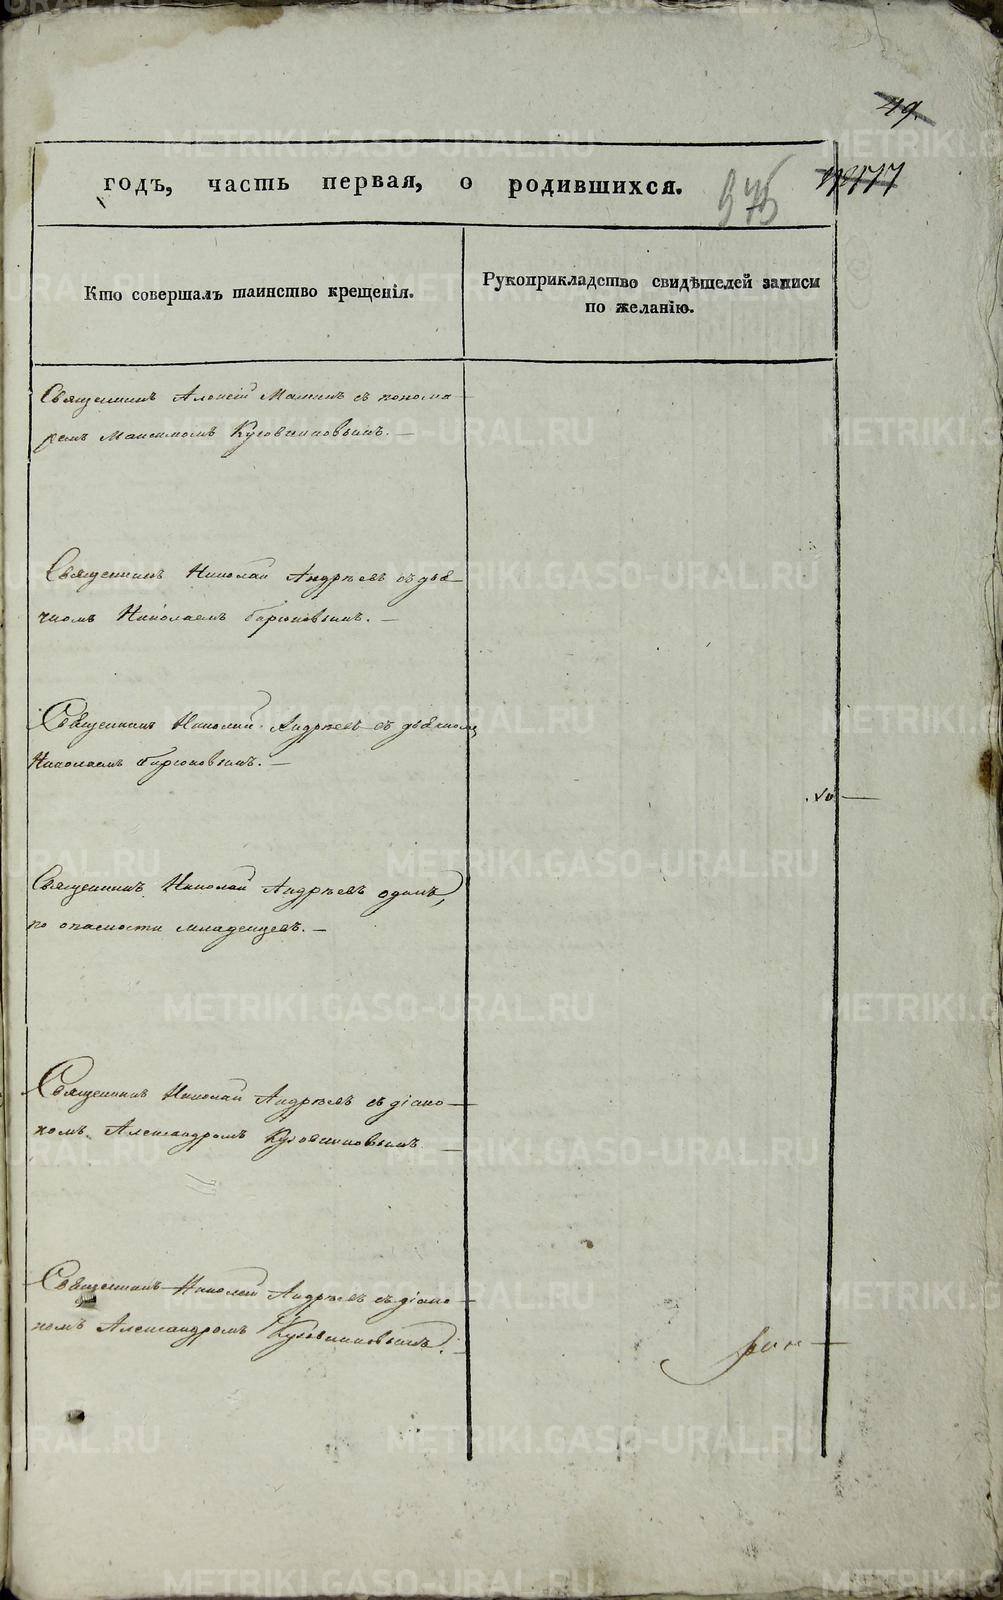 49.
годъ, часть первая, о родившихся.
Кто совершалъ таинство крещенія.
Рукоприкладство свидѣтелей записи
по желанію.
Священникъ Алексій с понома
ремъ Максимомъ Кузовниковымъ. —
Священникъ Николай Андрѣевъ съ дья
чкомъ Николаемъ Бирюковымъ. —
Священникъ Николай Андрѣевъ съ дьячкомъ
Николаемъ Бирюковымъ. —
Священникъ Николай Андрѣевъ одинъ,
по опасности младенцевъ. —
Священникъ Николай Андрѣевъ съ діако—
номъ Александромъ Кузовниковымъ —
Священникъ Николай Андрѣевъ съ діако—
номъ Александромъ Кузовниковымъ. —
METRIKI.GASO-URAL.RU